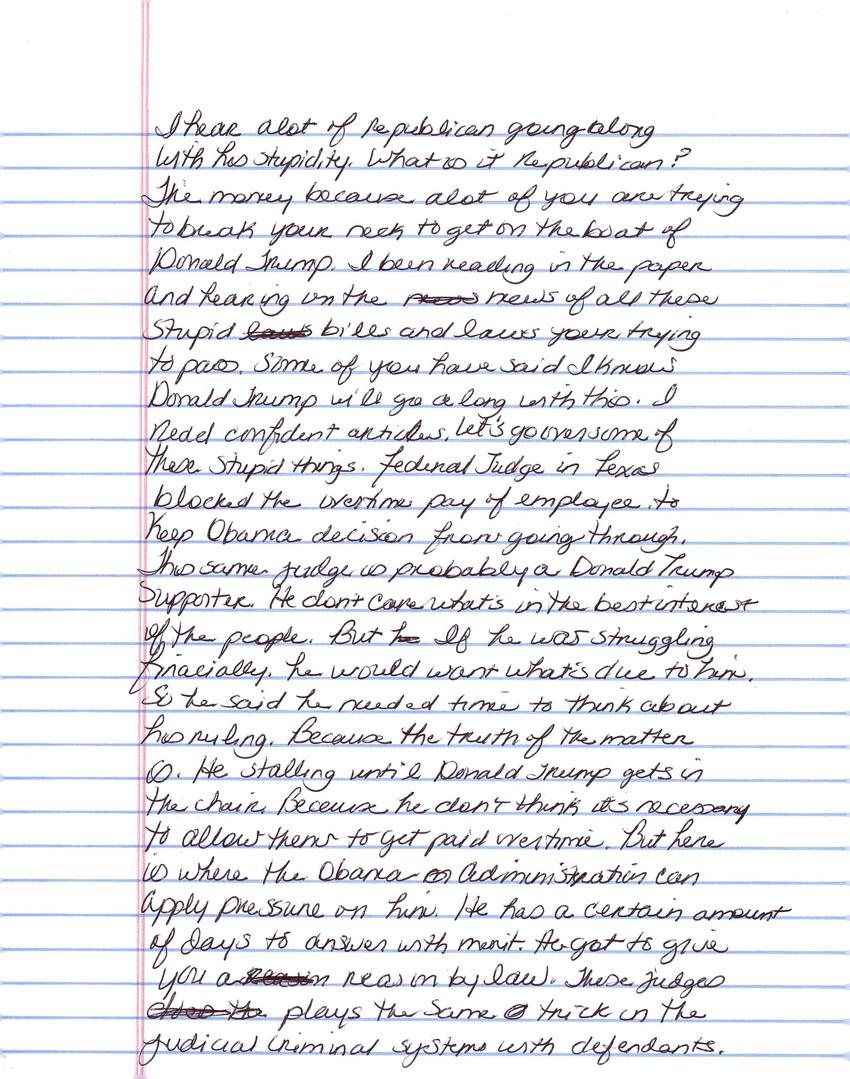 I hear alot of Republican going along
with his stupidity. What is it Republican?
The money because alot of you are trying
to break your neck to get on the boat of
Donald Trump. I been reading in the paper
and hearing on the news news of all these
stupid laws bills and laws your trying
to pass. Some of you have said I know
Donald Trump will go along with this. I
read confident articles. Let's go over some of
these stupid things. Federal Judge in Texas
blocked the overtime pay of employee. to
keep Obama decision from going through.
This same judge is probably a Donald Trump
Supporter. He don't care what's in the best interest
of the people. But he If he was struggling
finacially. he would want what's due to him.
So he said he needed time to think about
his ruling. Because the truth of the matter
is. He stalling until Donald Trump gets in
the chair. Because he don't think it's necessary
to allow them to get paid overtime. But here
is where the Obama administration can
apply pressure on him. He has a certain amount
of days to answer with merit. He got to give
you a reason reason by law. These judges
plays the same trick in the
judicial criminal systems with defendants.